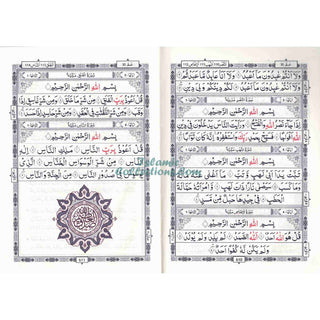 وَلَا أَنتُمْ عَابِدُونَ مَا أَعْبُدُ وَلَا أَنَا عَابِدٌ مَّا عَبَدتُّمْ
وَلَا أَنتُمْ عَابِدُونَ مَا أَعْبُدُ لَكُمْ دِينُكُمْ وَلِيَ دِينِ
بِسْمِ اللهِ الرَّحْمٰنِ الرَّحِيْمِ
إِذَا جَاءَ نَصْرُ اللهِ وَالْفَتْحُ وَرَأَيْتَ النَّاسَ يَدْخُلُونَ فِي دِينِ
اللهِ أَفْوَاجًا فَسَبِّحْ بِحَمْدِ رَبِّكَ وَاسْتَغْفِرْهُ إِنَّهُ كَانَ تَوَّابًا
بِسْمِ اللهِ الرَّحْمٰنِ الرَّحِيْمِ
تَبَّتْ يَدَا أَبِي لَهَبٍ وَتَبَّ مَا أَغْنَى عَنْهُ مَالُهُ
وَمَا كَسَبَ سَيَصْلَى نَارًا ذَاتَ لَهَبٍ وَامْرَأَتُهُ حَمَّالَةَ
الْحَطَبِ فِي جِيدِهَا حَبْلٌ مِّن مَّسَدٍ
بِسْمِ اللهِ الرَّحْمٰنِ الرَّحِيْمِ
قُلْ هُوَ اللهُ أَحَدٌ اللهُ الصَّمَدُ لَمْ يَلِدْ وَلَمْ يُولَدْ
وَلَمْ يَكُن لَّهُ كُفُوًا أَحَدٌ
بِسْمِ اللهِ الرَّحْمٰنِ الرَّحِيْمِ
قُلْ أَعُوذُ بِرَبِّ الْفَلَقِ مِن شَرِّ مَا خَلَقَ وَمِن شَرِّ غَاسِقٍ إِذَا
وَقَبَ وَمِن شَرِّ النَّفَّاثَاتِ فِي الْعُقَدِ وَمِن شَرِّ حَاسِدٍ إِذَا حَسَدَ
بِسْمِ اللهِ الرَّحْمٰنِ الرَّحِيْمِ
قُلْ أَعُوذُ بِرَبِّ النَّاسِ مَلِكِ النَّاسِ
إِلَهِ النَّاسِ مِن شَرِّ الْوَسْوَاسِ الْخَنَّاسِ الَّذِي يُوَسْوِسُ
فِي صُدُورِ النَّاسِ مِنَ الْجِنَّةِ وَالنَّاسِ